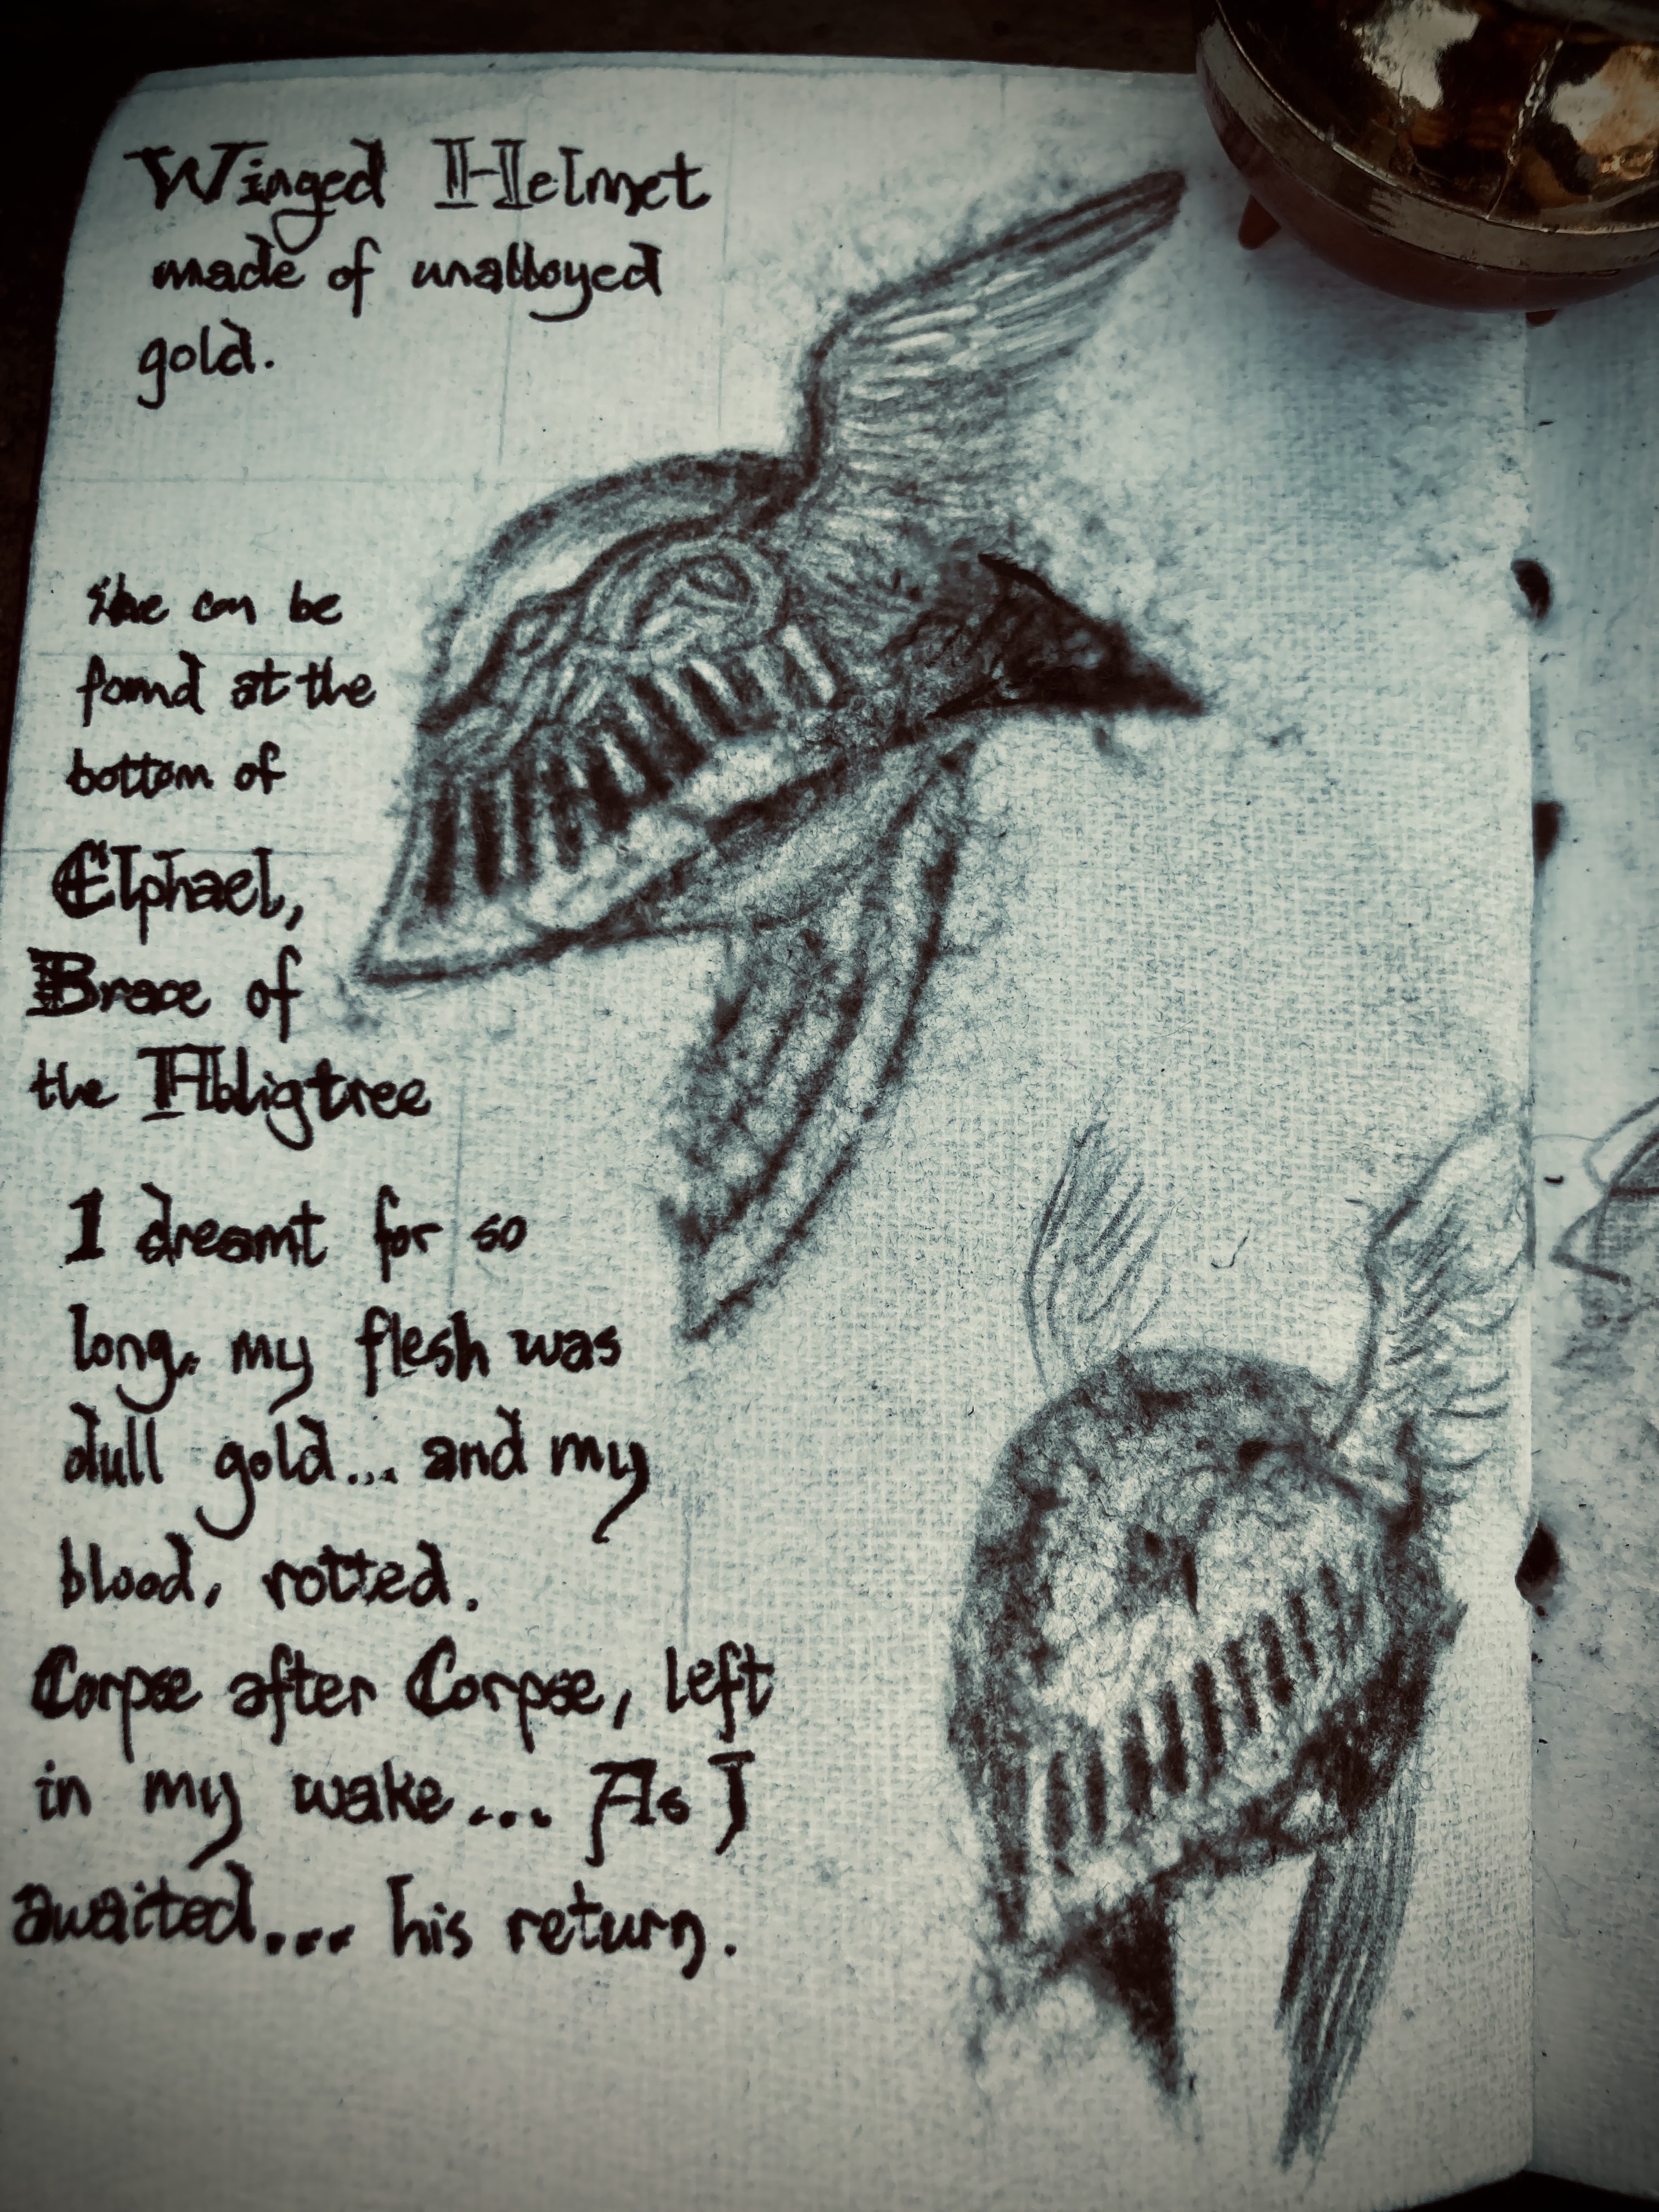 Winged Helmet
made of unalloyed
gold.
She can be
found at the
bottom of
Elphael,
Brace of
the Haligtree
I dreamt for so
long. my flesh was
dull gold... and my
blood, rotted.
Corpse after Corpse, left
in my wake... As I
awaited... his return.